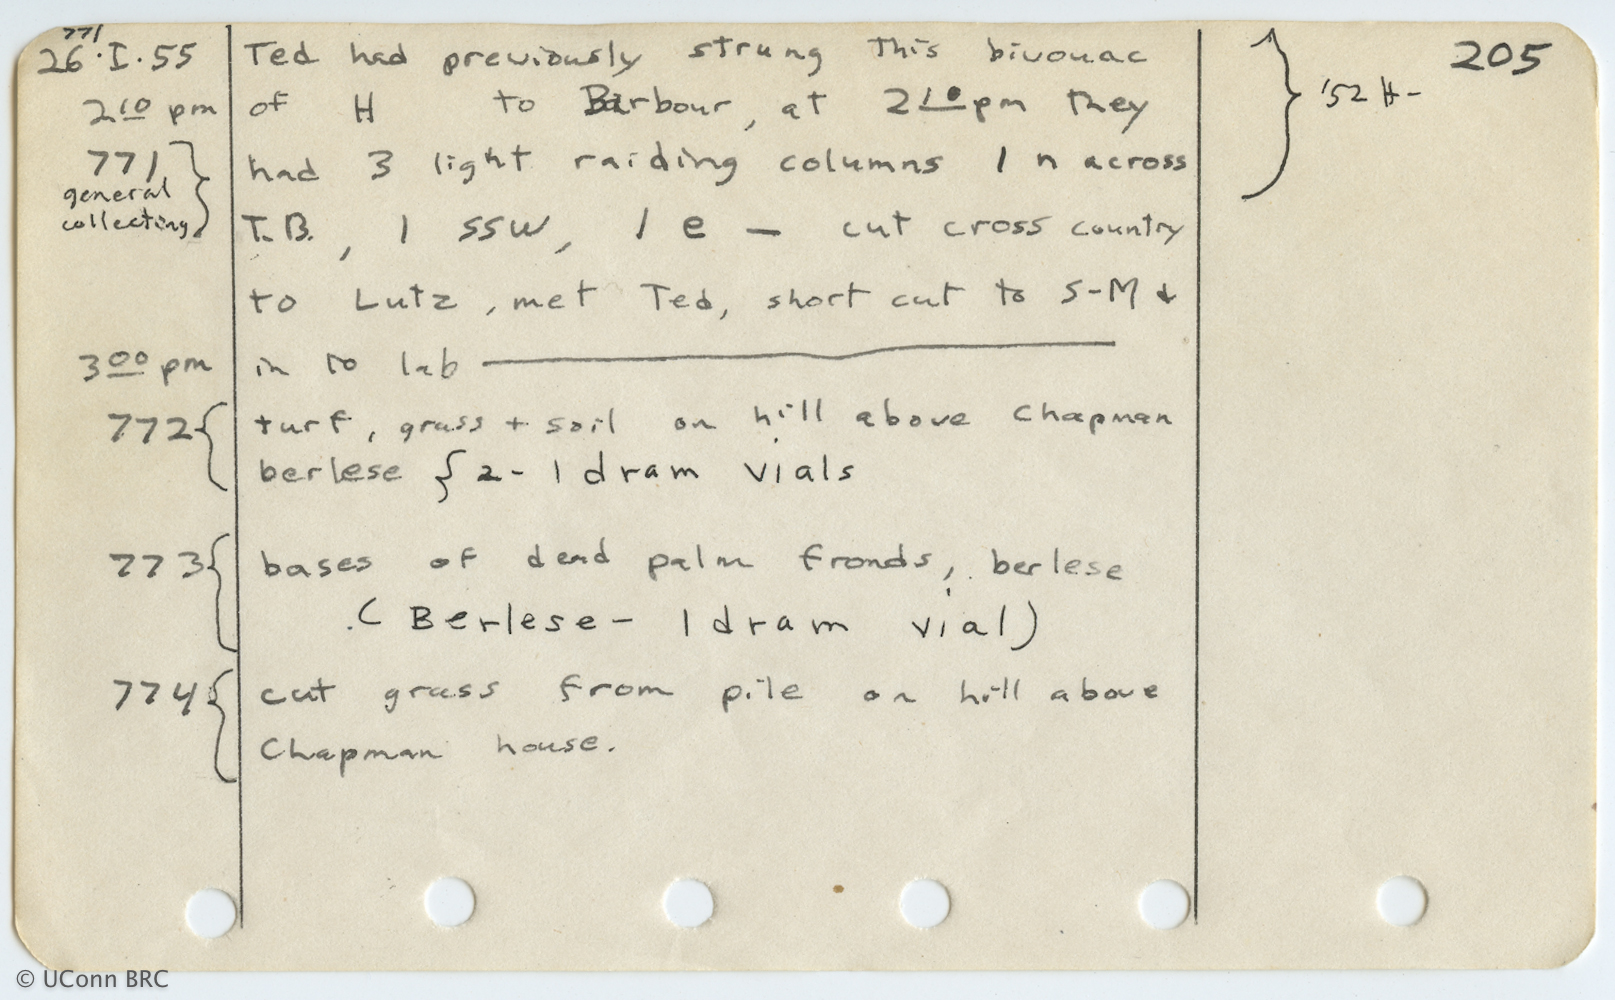 771
26·I·55 Ted had previously strung this bivouac '52 H- 205
2 10 pm of H to Barbour, at 2 10 pm they
771 had 3 light raiding columns 1 n across
general
collecting T.B., 1 ssw, 1 e — cut cross country
to Lutz, met Ted, short cut to S-M &
3 00 pm in to lab
772 turf, grass + soil on hill above Chapman
berlese { 2 - 1 dram vials
773 bases of dead palm fronds, berlese
(Berlese - 1 dram vial)
774 cut grass from pile on hill above
Chapman house.
© UConn BRC